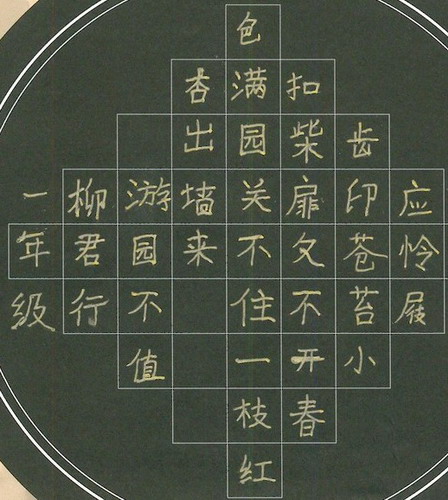 应怜屐
齿印苍苔小
扣柴扉久不开春
色满园关不住一枝红
杏出墙来
游园不值
柳君行
一年级